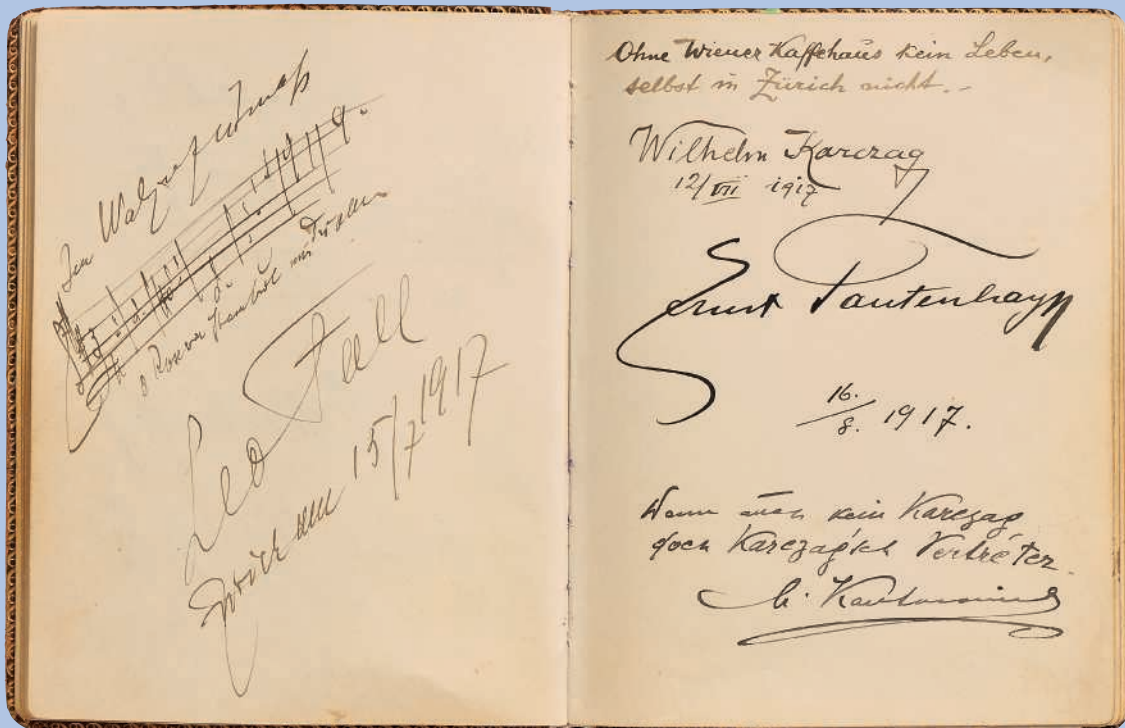 Im Walzerzeitmaß
o Rose von Stambul nur Du allein
Leo Fall
Zürich am 15/7 1917
Ohne Wiener Kaffehaus kein Leben,
selbst in Zürich nicht. -
Wilhelm Karczag
12/VII 1917
Ernst Tautenhayn
16./8. 1917.
Wenn auch kein Karczag
doch Karczag'scher Vertreter.